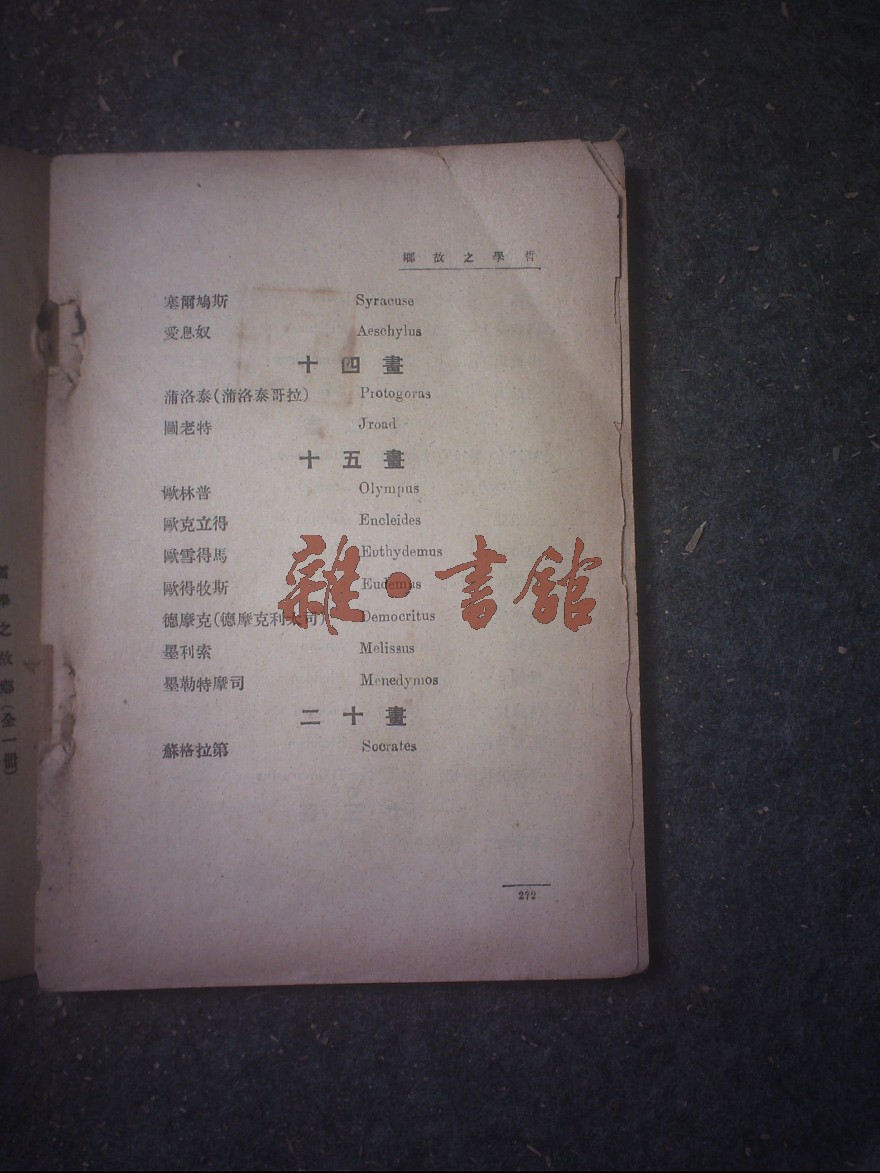 鄉故之學哲
塞爾鳩斯 Syracuse
愛息奴 Aeschylus
十四畫
蒲洛泰(蒲洛泰哥拉) Protogoras
圖老特 Jroad
十五畫
歐林普 Olympus
歐克立得 Encleides
歐雪得馬 Euthydemus
歐得牧斯 Eudemus
德摩克(德摩克利太司) Democritus
墨利索 Melissus
墨勒特摩司 Menedymos
二十畫
蘇格拉第 Socrates
272
哲學之故鄉(全一冊)
雜·書館